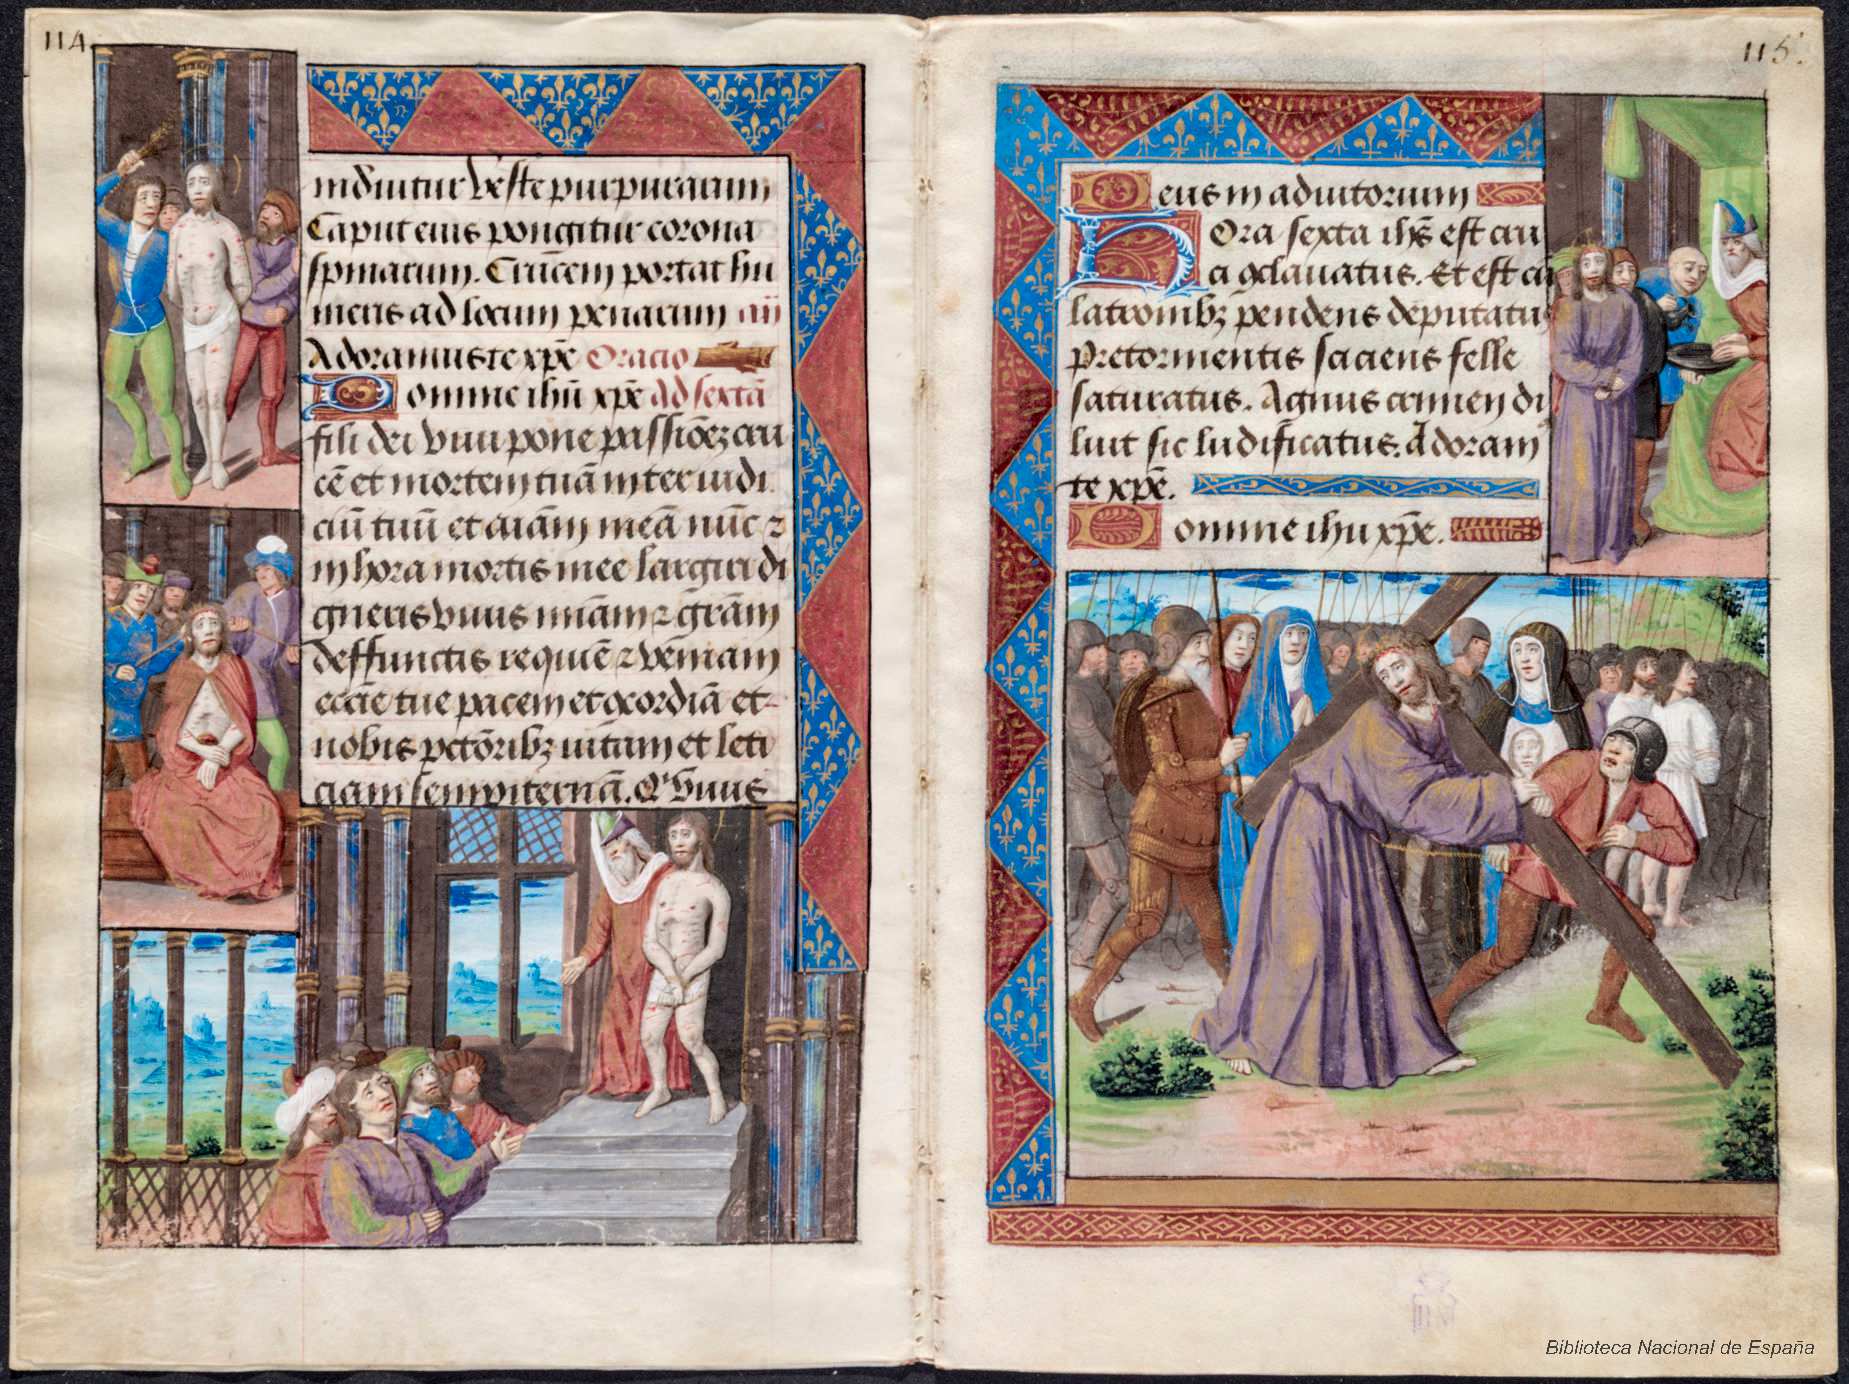 114
induitur veste purpurarum
Caput eius pongitur corona
spinarum. Crucem portat hu
meris ad locum penarum añ
Adoramus te xp̄e Oracio
Domine ihū xp̄e ad sextā
fili dei viui pone passiōeȝ cru
cē et mortem tuā inter iudi
ciū tuū et aīam meā nūc ⁊
in hora mortis mee largiri di
gneris viuis m̄iam ⁊ gr̄am
deffunctis requiē ⁊ veniam
eccīe tue pacem et ꝯcordiā et
nobis pctōribȝ uitam et leti
ciam sempiternā. Qͥ viuis
115.
Deus in adiutorium
Hora sexta ihs̄ est cru
ci ꝯclauatus. Et est cū
latronibȝ pendens deputatus
Pre tormentis siciens felle
saturatus. Agnus crimen di
luit sic ludificatus. Adoram
te xp̄e.
Domine ihu xp̄e.
Biblioteca Nacional de España